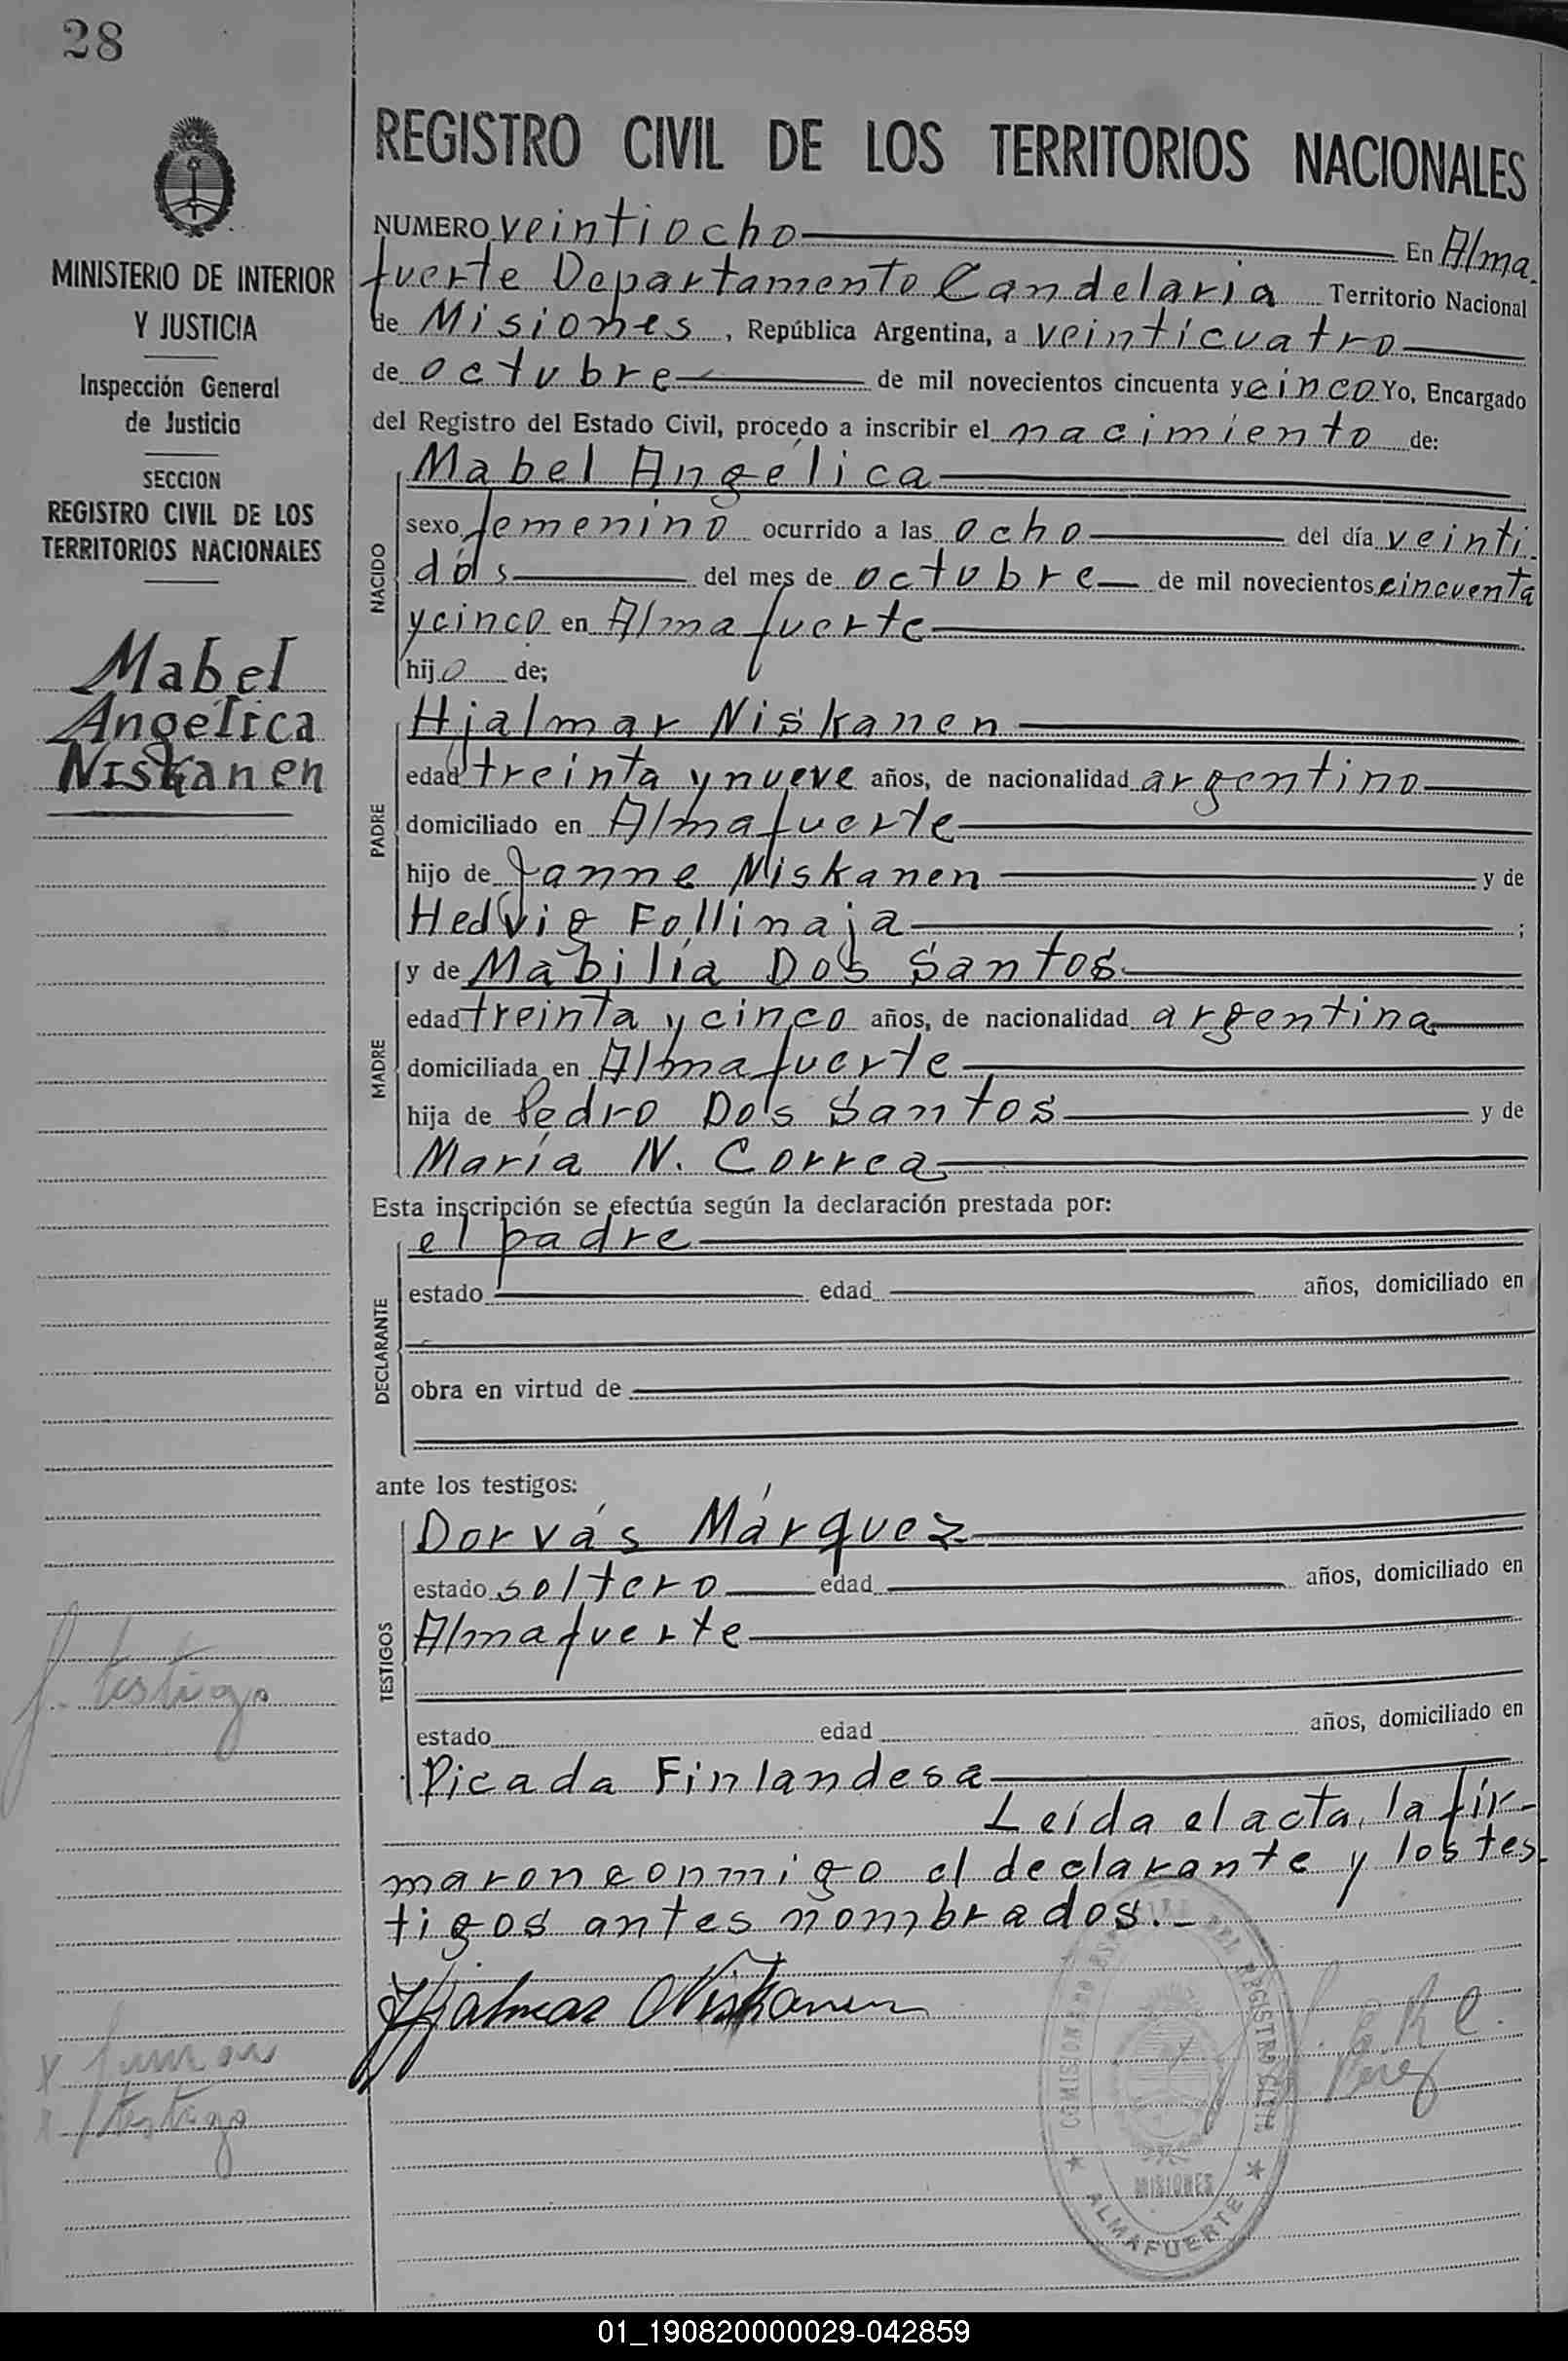 28
MINISTERIO DE INTERIOR
Y JUSTICIA
Inspección General
de Justicia
SECCION
REGISTRO CIVIL DE LOS
TERRITORIOS NACIONALES
Mabel
Angélica
Niskanen
f. testigo
x firmar
x f testigo
REGISTRO CIVIL DE LOS TERRITORIOS NACIONALES
NUMERO veintiocho En Alma.
fuerte Departamento Candelaria Territorio Nacional
de Misiones, República Argentina, a veinticuatro
de octubre de mil novecientos cincuenta y cinco Yo, Encargado
del Registro del Estado Civil, procedo a inscribir el nacimiento de:
Mabel Angélica
NACIDO
sexo femenino ocurrido a las ocho del día veinti.
dós del mes de octubre de mil novecientos cincuenta
y cinco en Almafuerte
hijo de;
PADRE
Hjalmar Niskanen
edad treinta y nueve años, de nacionalidad argentino
domiciliado en Almafuerte
hijo de Janne Niskanen y de
Hedvig Follinaja ;
MADRE
y de Mabilia Dos Santos
edad treinta y cinco años, de nacionalidad argentina
domiciliada en Almafuerte
hija de Pedro Dos Santos y de
María N. Correa
Esta inscripción se efectúa según la declaración prestada por:
el padre
DECLARANTE
estado edad años, domiciliado en
obra en virtud de
ante los testigos:
TESTIGOS
Dorvás Márquez
estado soltero edad años, domiciliado en
Almafuerte
estado edad años, domiciliado en
Picada Finlandesa
Leída el acta, la fir-
maron conmigo el declarante y los tes.
tigos antes nombrados.-
Hjalmar Niskanen
REGISTRO CIVIL
MISIONES
ALMAFUERTE
Perez
01_190820000029-042859